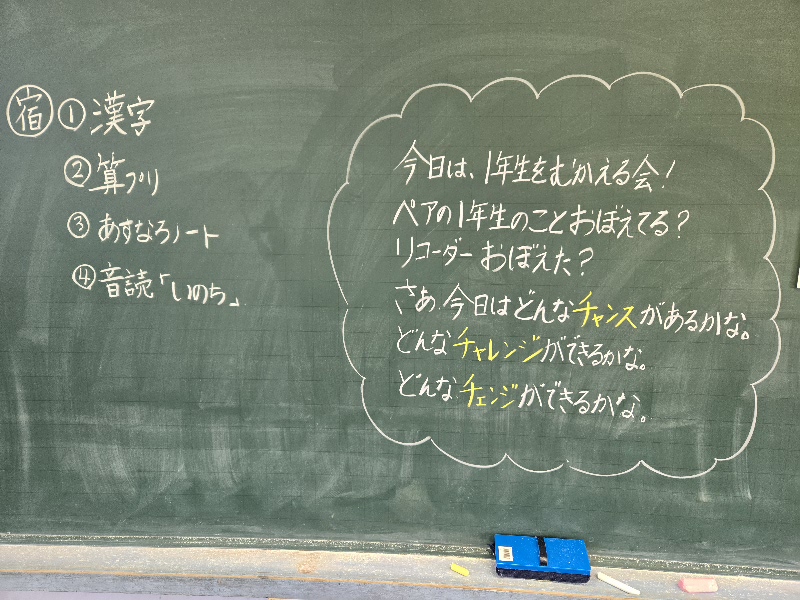 宿 ① 漢字
② 算プリ
③ あすなろノート
④ 音読「いのち」
今日は、1年生をむかえる会!
ペアの1年生のことおぼえてる?
リコーダーおぼえた?
さあ、今日はどんなチャンスがあるかな。
どんなチャレンジができるかな。
どんなチェンジができるかな。